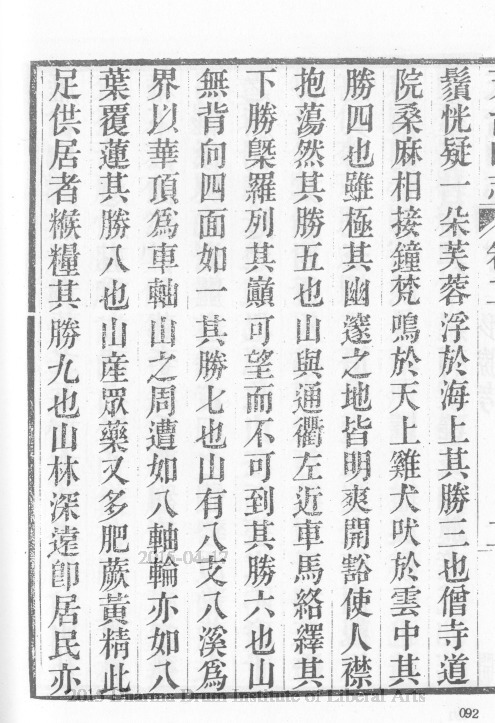 鬢恍疑一朵芙蓉浮於海上其勝三也僧寺道
院桑麻相接鐘梵鳴於天上雞犬吠於雲中其
勝四也雖極其幽邃之地皆明爽開豁使人襟
抱蕩然其勝五也山與通衢左近車馬絡繹其
下勝槩羅列其巔可望而不可到其勝六也山
無背向四面如一其勝七也山有八支八溪爲
界以華頂爲車軸山之周遭如八軸輪亦如八
葉覆蓮其勝八也山産眾藥又多肥蕨黃精此
足供居者糇糧其勝九也山林深遠卽居民亦
Dharma Drum Institute of Liberal Arts
092